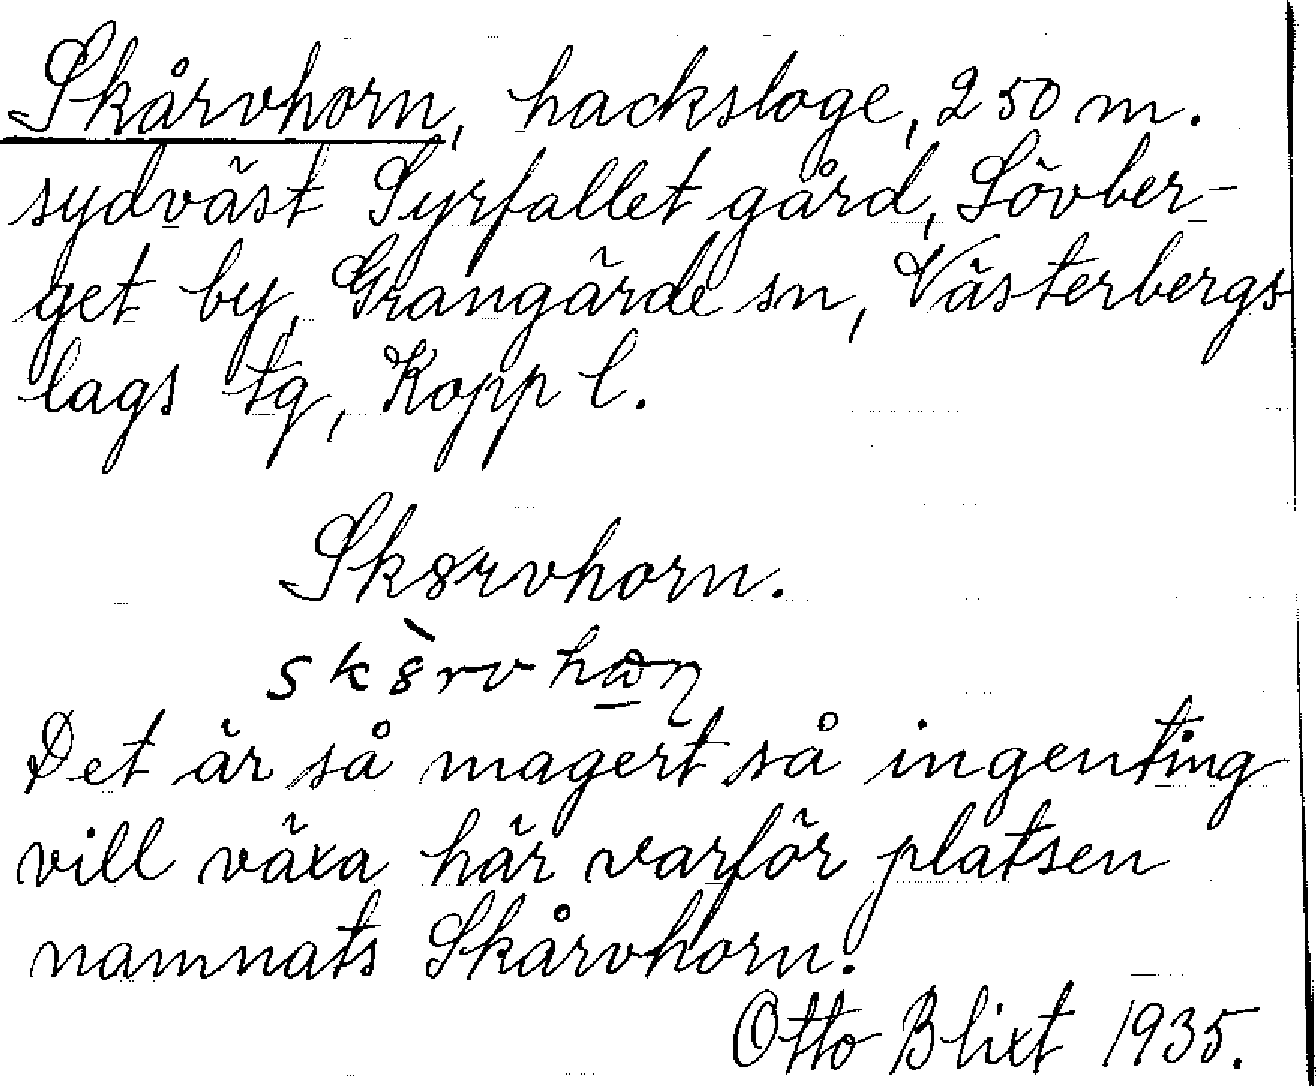 Skårvhorn, hacksloge, 250 m.
sydväst Syrfallet gård, Lövber-
get by, Grangärde sn, Västerbergs
lags tg, Kopp l.
Sk8rvhorn.
Det är så magert så ingenting
vill växa här varför platsen
namnats Skårvhorn.
Otto Blixt 1935.